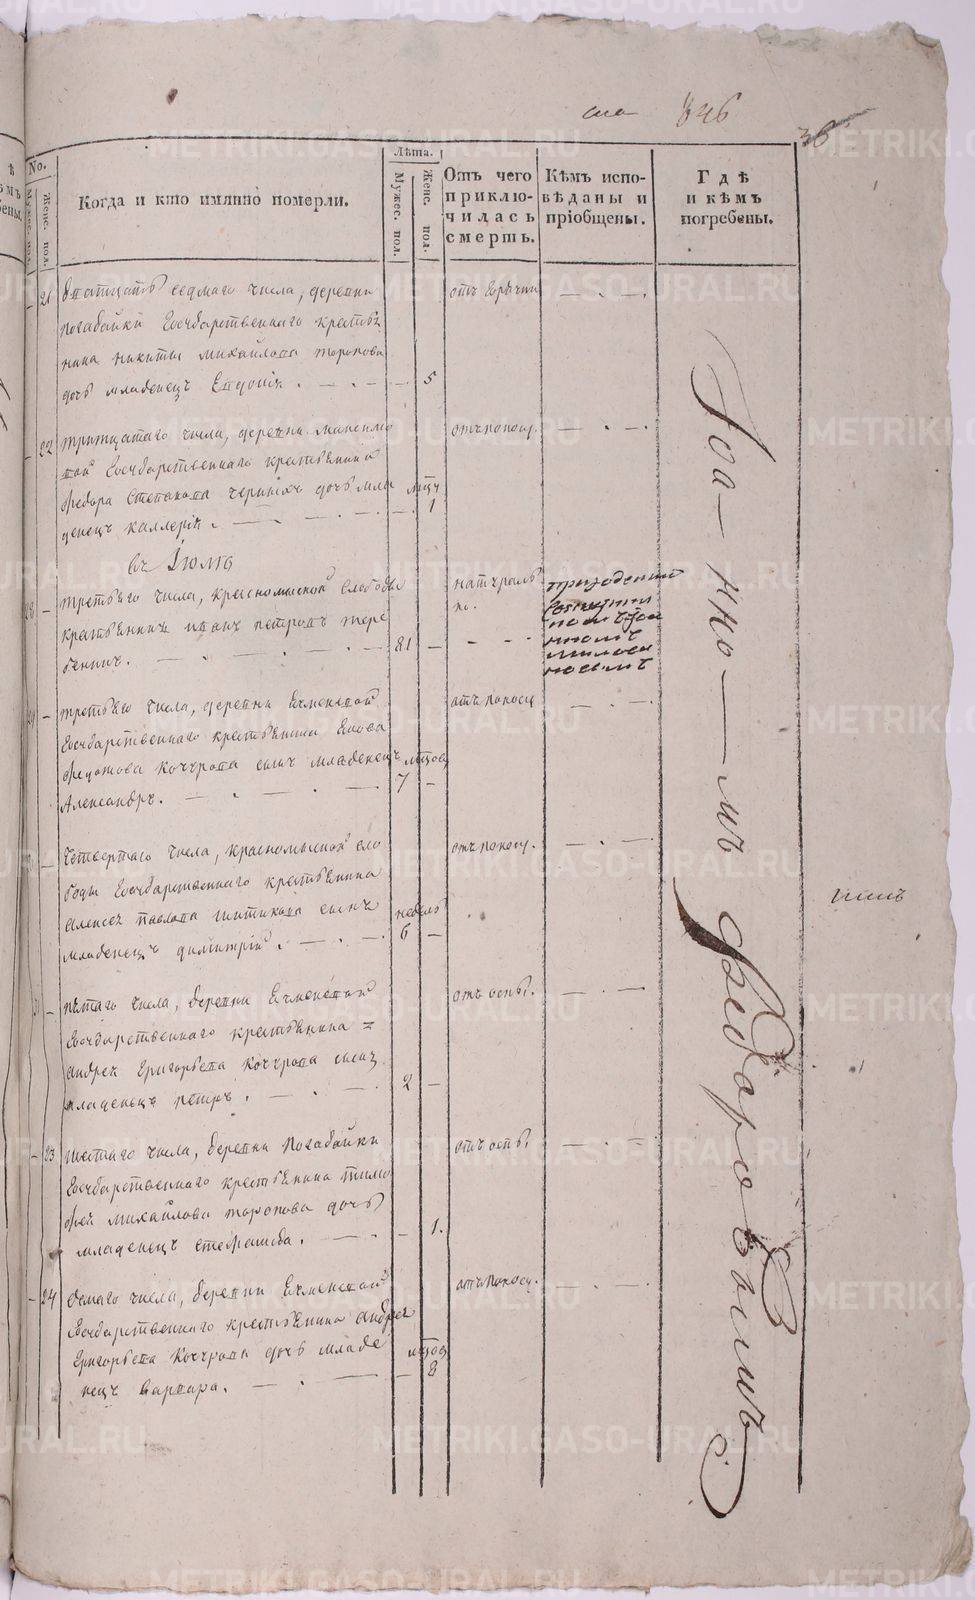 846
36
No.
Мужес. пол.
Женс. пол.
Когда и кто имянно померли.
Лѣта.
Мужес. пол.
Женс. пол.
Отъ чего приклю-
чилась смерть.
Кѣмъ испо-
вѣданы и
прiобщены.
Гдѣ
и кѣмъ
погребены.
21
седмаго числа, деревни
Государственнаго крестья
нина Никиты Михайлова Торопова
дочь младенецъ Евдокiя.
5
отъ горячки
22
тритцатаго числа, деревни
Государственнаго крестьянина
Федора Степанова дочь мла
денецъ Каллерiя.
мѣц
1
отъ поносу.
въ Iюлѣ
третьяго числа, Красномыской слободы
крестьянинъ Иванъ Петровъ Тере
бенинъ.
81
натураль
но.
третьяго числа, деревни Ечменской
Государственнаго крестьянина Якова
Федотова Кочурова сынъ младенецъ
Александръ.
мѣцов
7
отъ поносу
четвертаго числа, Красномыской сло
боды Государственнаго крестьянина
Алексея Павлова Шитикова сынъ
младенецъ Димитрiй.
недель
6
отъ поносу.
пятаго числа, деревни Ечменской
Государственнаго крестьянина
Андрея Григорьева Кочурова сынъ
младенецъ Петръ.
2
отъ оспы.
23
шестаго числа, деревни
Государственнаго крестьянина Тимо
фея Михайлова Торопова дочь
младенецъ Стефанида.
1.
отъ оспы
24
осмаго числа, деревни Ечменской
Государственнаго крестьянина Андрея
Григорьева Кочурова дочь младе
нецъ Варвара.
мѣцов
8
отъ поносу.
Иоа-нно-мъ Ѳедоровымъ
METRIKI.GASO-URAL.RU